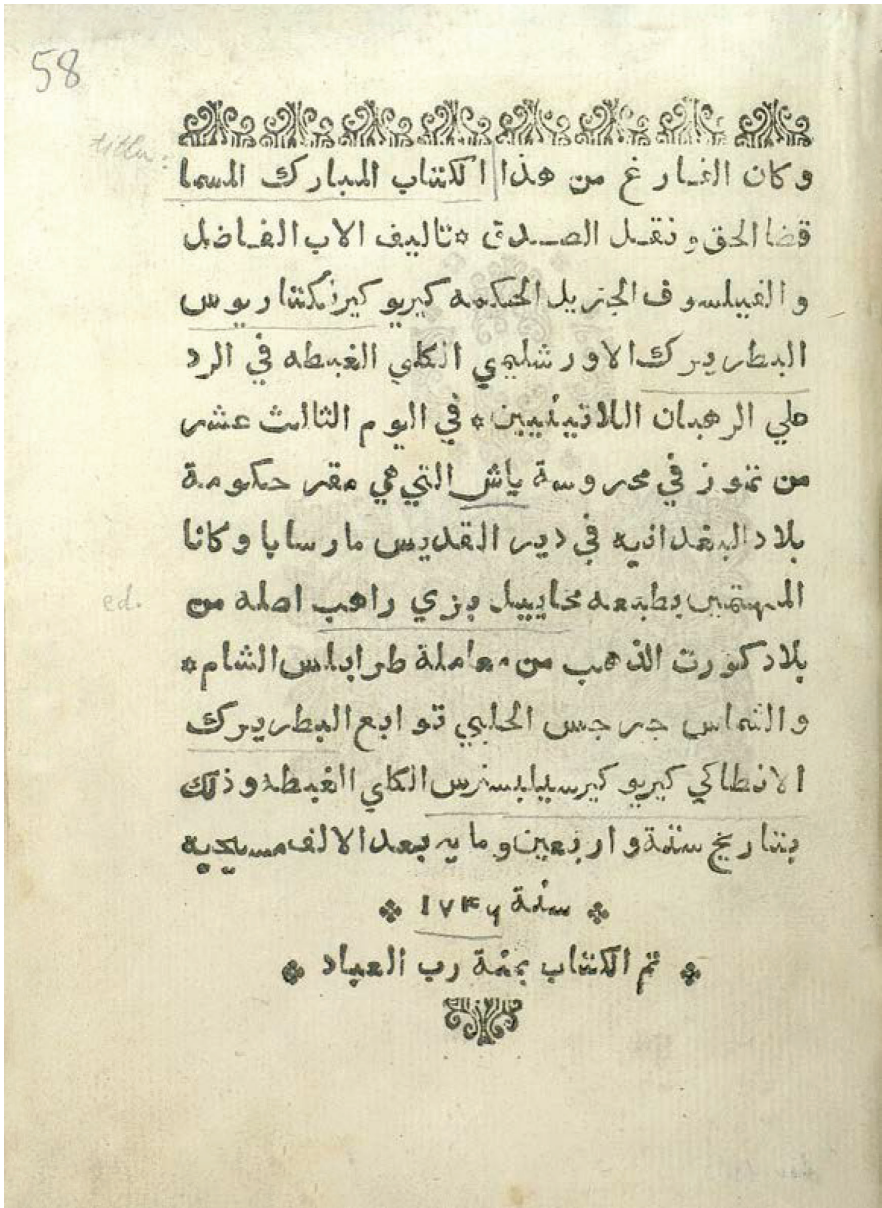 58
title:
وكان الفارغ من هذا الكتاب المبارك المسما
قضا الحق ونقل الصدق * تاليف الاب الفاضل
والفيلسوف الجزيل الحكمه كيريو كير نكتاريوس
البطريرك الاورشليمي الكلي الغبطه في الرد
علي الرهبان اللاتينيين * في اليوم الثالث عشر
من تموز في محروسة ياش التي هي مقر حكومة
بلاد البغدانيه في دير القديس مار سابا وكانا
المهتمين بطبعه مخاييل بزي راهب اصله من
بلاد كورت الذهب من معاملة طرابلس الشام *
والشماس جرجس الحلبي توابع البطريرك
الانطاكي كيريو كير سيلبسترس الكلي الغبطه وذلك
بتاريخ ستة واربعين ومايه بعد الالف مسيحيه
سنة ١٧٤٦
تم الكتاب بمنة رب العباد
ed.